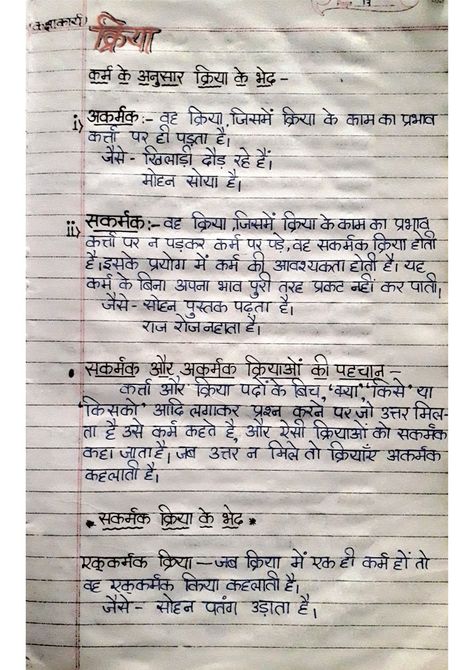 (कक्षाकार्य)
क्रिया
कर्म के अनुसार क्रिया के भेद -
i) अकर्मक :- वह क्रिया, जिसमें क्रिया के काम का प्रभाव
कर्त्ता पर ही पड़ता है।
जैसे - खिलाड़ी दौड़ रहे हैं।
मोहन सोया है।
ii) सकर्मक :- वह क्रिया, जिसमें क्रिया के काम का प्रभाव
कर्त्ता पर न पड़कर कर्म पर पड़े, वह सकर्मक क्रिया होती
है। इसके प्रयोग में कर्म की आवश्यकता होती है। यह
कर्म के बिना अपना भाव पुरी तरह प्रकट नहीं कर पाती।
जैसे - सोहन पुस्तक पढ़ता है।
राज रोज नहाता है।
• सकर्मक और अकर्मक क्रियाओं की पहचान -
कर्ता और क्रिया पदों के बिच, 'क्या', 'किसे' या
'किसको' आदि लगाकर प्रश्न करने पर जो उत्तर मिल-
ता है उसे कर्म कहते है, और ऐसी क्रियाओं को सकर्मक
कहा जाता है। जब उत्तर न मिले तो क्रियाएँ अकर्मक
कहलाती है।
* सकर्मक क्रिया के भेद *
एककर्मक क्रिया — जब क्रिया में एक ही कर्म हों तो
वह एककर्मक क्रिया कहलाती है।
जैसे - सोहन पतंग उड़ाता है।